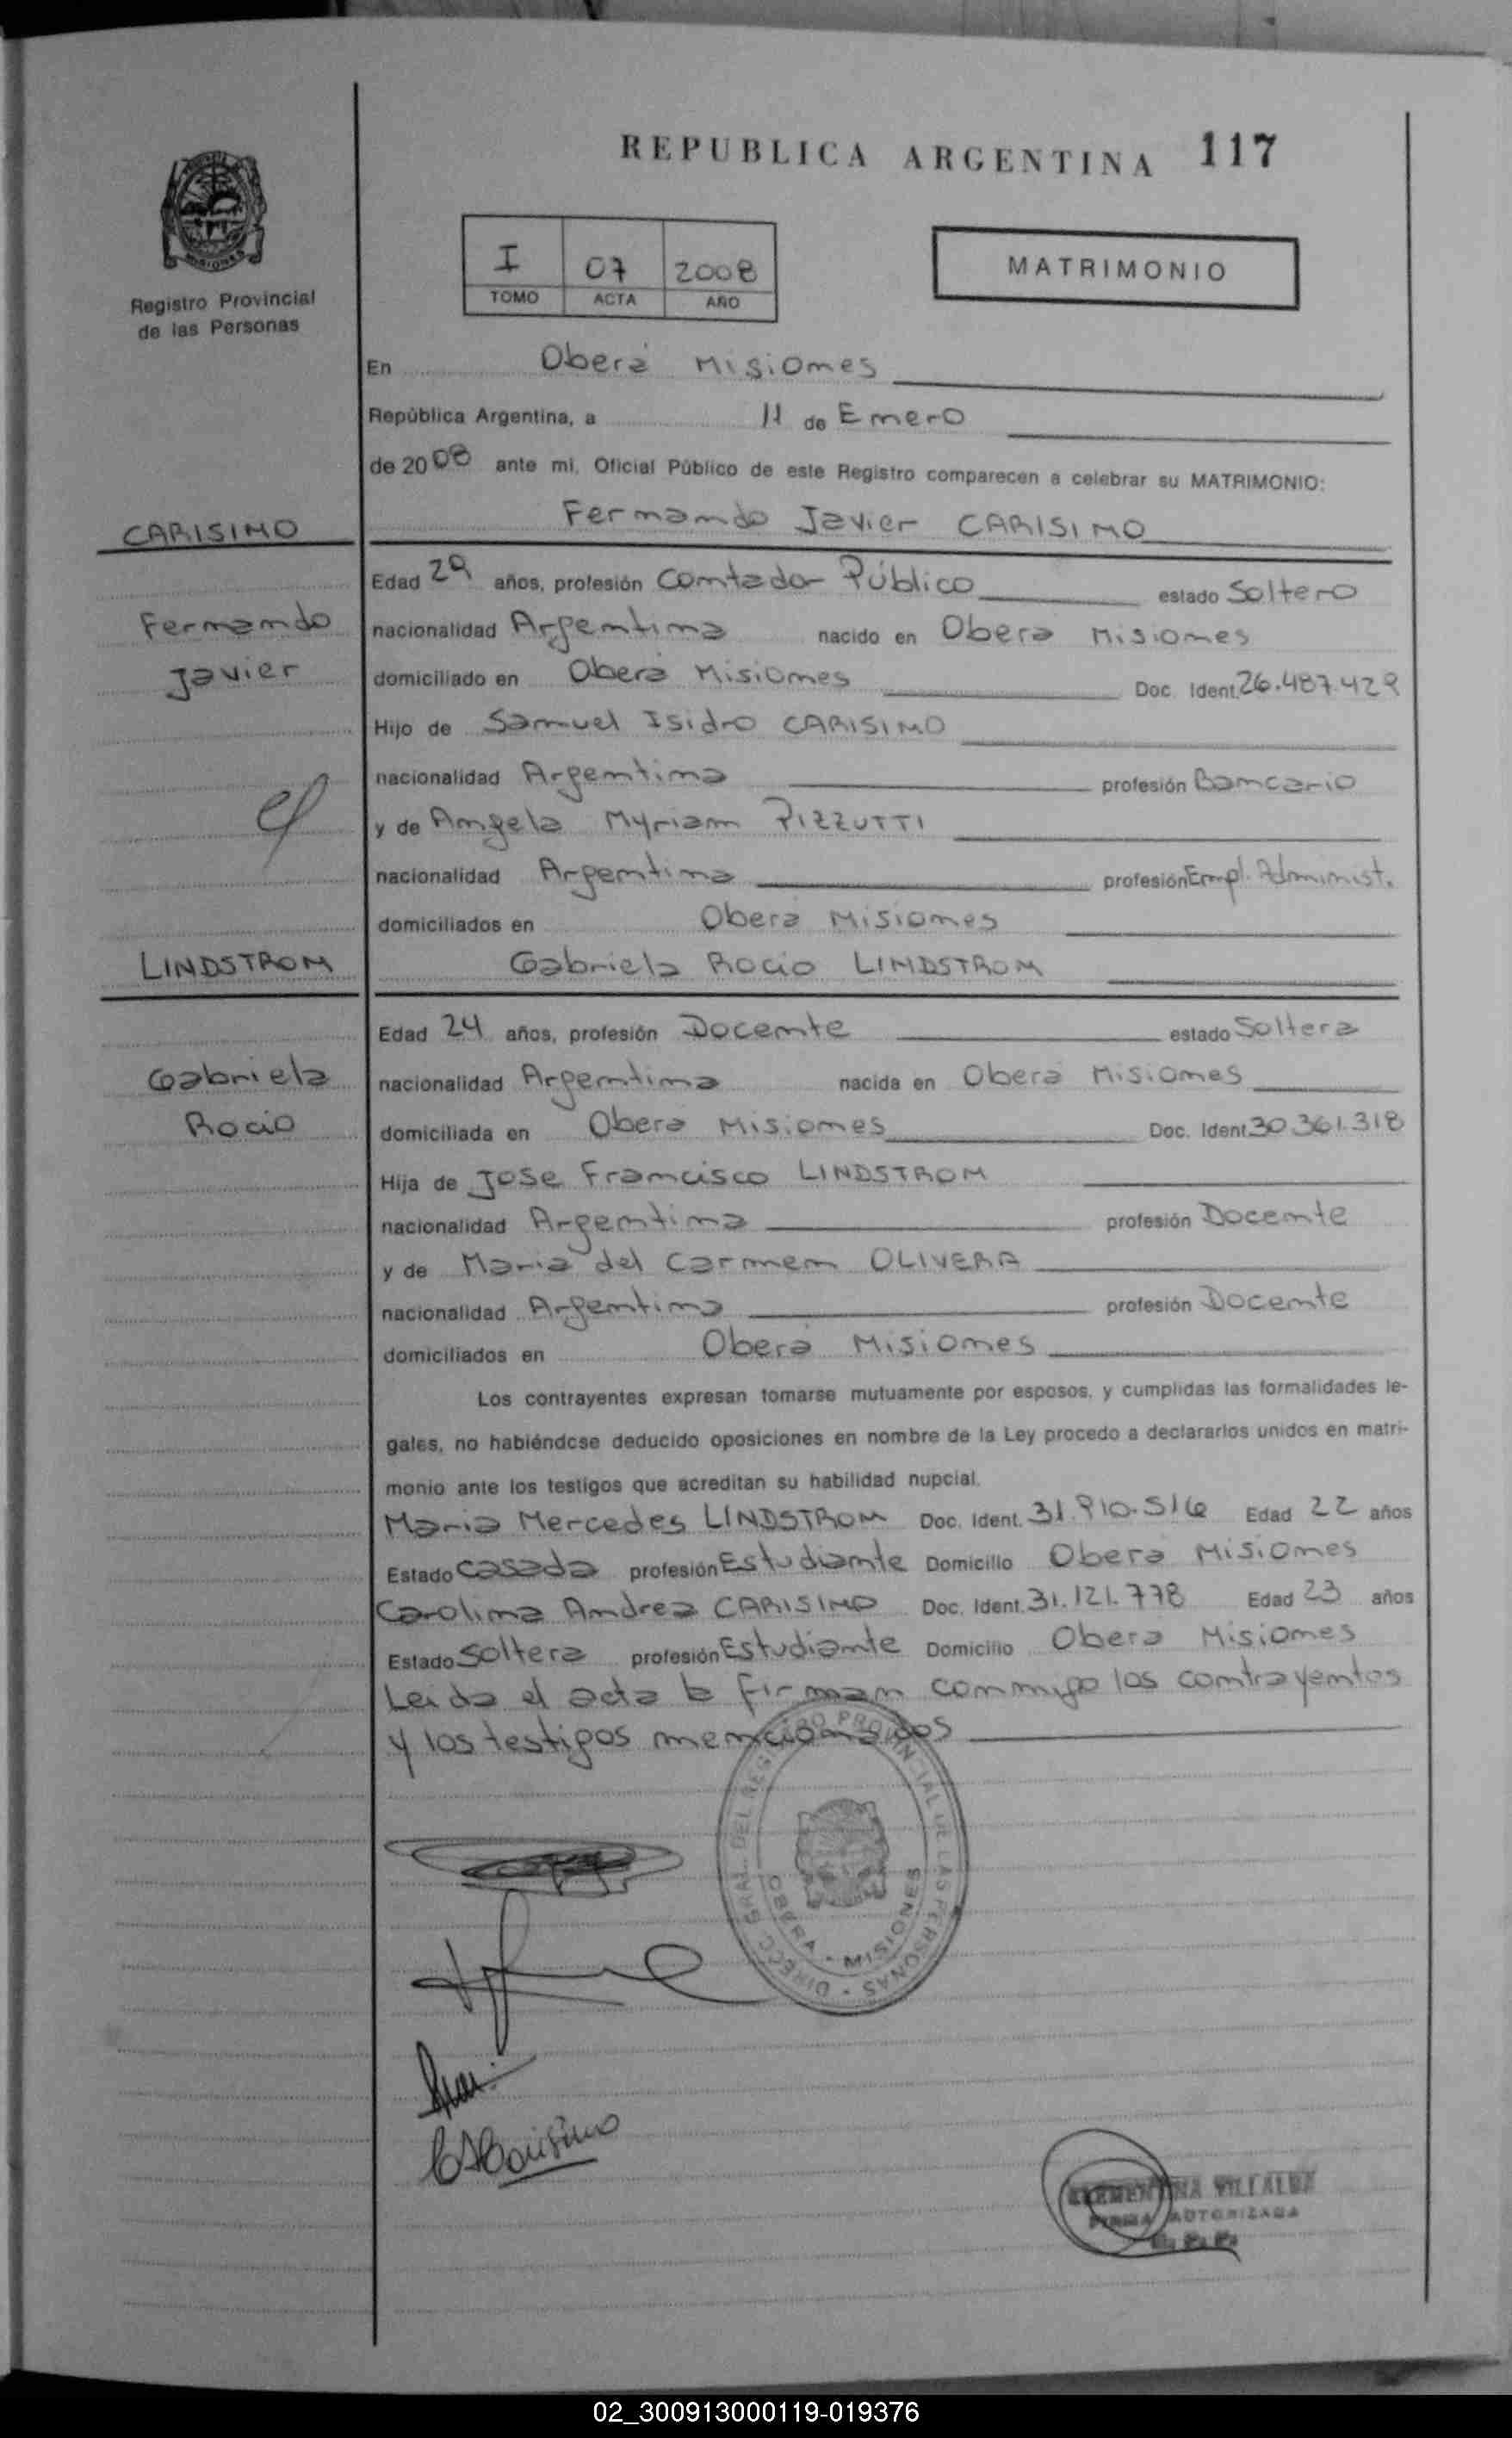 REPUBLICA ARGENTINA 117
MISIONES
Registro Provincial
de las Personas
I 07 2008
TOMO ACTA AÑO
MATRIMONIO
En Oberá Misiones
República Argentina, a 11 de Enero
de 2008 ante mi, Oficial Público de este Registro comparecen a celebrar su MATRIMONIO:
CARISIMO Fernando Javier CARISIMO
Edad 29 años, profesión Contador Público estado Soltero
Fernando nacionalidad Argentina nacido en Obera Misiones
Javier domiciliado en Oberá Misiones Doc. Ident. 26.487.429
Hijo de Samuel Isidro CARISIMO
nacionalidad Argentina profesión Bancario
y de Angela Myriam PIZZUTTI
nacionalidad Argentina profesión Empl. Administ.
domiciliados en Oberá Misiones
LINDSTROM Gabriela Rocio LINDSTROM
Edad 24 años, profesión Docente estado Soltera
Gabriela nacionalidad Argentina nacida en Oberá Misiones
Rocio domiciliada en Oberá Misiones Doc. Ident. 30.361.318
Hija de Jose Francisco LINDSTROM
nacionalidad Argentina profesión Docente
y de Maria del Carmen OLIVERA
nacionalidad Argentina profesión Docente
domiciliados en Oberá Misiones
Los contrayentes expresan tomarse mutuamente por esposos, y cumplidas las formalidades le-
gales, no habiéndose deducido oposiciones en nombre de la Ley procedo a declararlos unidos en matri-
monio ante los testigos que acreditan su habilidad nupcial.
Maria Mercedes LINDSTROM Doc. Ident. 31.910.516 Edad 22 años
Estado Casada profesión Estudiante Domicilio Oberá Misiones
Carolina Andrea CARISIMO Doc. Ident. 31.121.778 Edad 23 años
Estado Soltera profesión Estudiante Domicilio Obera Misiones
Leida el acta la firman conmigo los contrayentes
y los testigos mencionados
DIRECC. GRAL. DEL REGISTRO PROVINCIAL DE LAS PERSONAS
OBERA - MISIONES
CACarisimo
CLEMENTINA VILLALBA
FIRMA AUTORIZADA
02_300913000119-019376